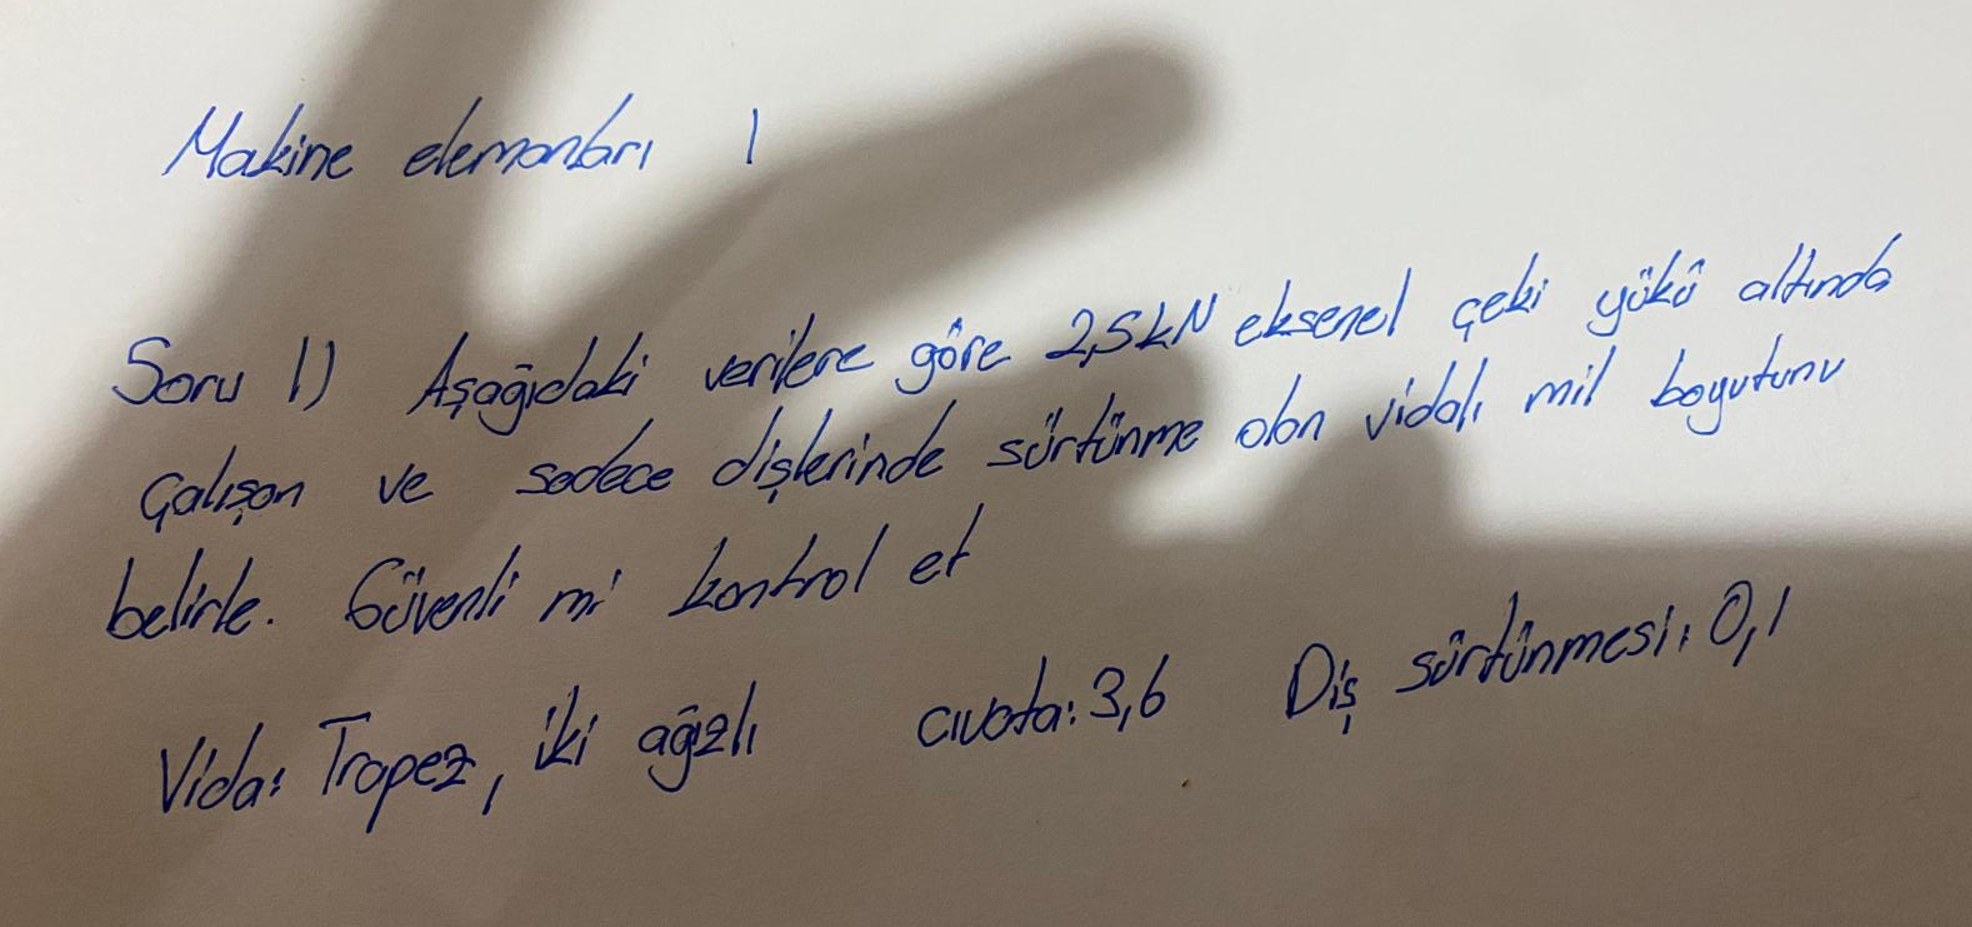 Makine elemanları 1
Soru 1) Aşağıdaki verilere göre 2,5kN eksenel çeki yükü altında
çalışan ve sadece dişlerinde sürtünme olan vidalı mil boyutunu
belirle. Güvenli mi kontrol et
Vida: Trapez, iki ağızlı cıvata: 3,6 Diş sürtünmesi: 0,1